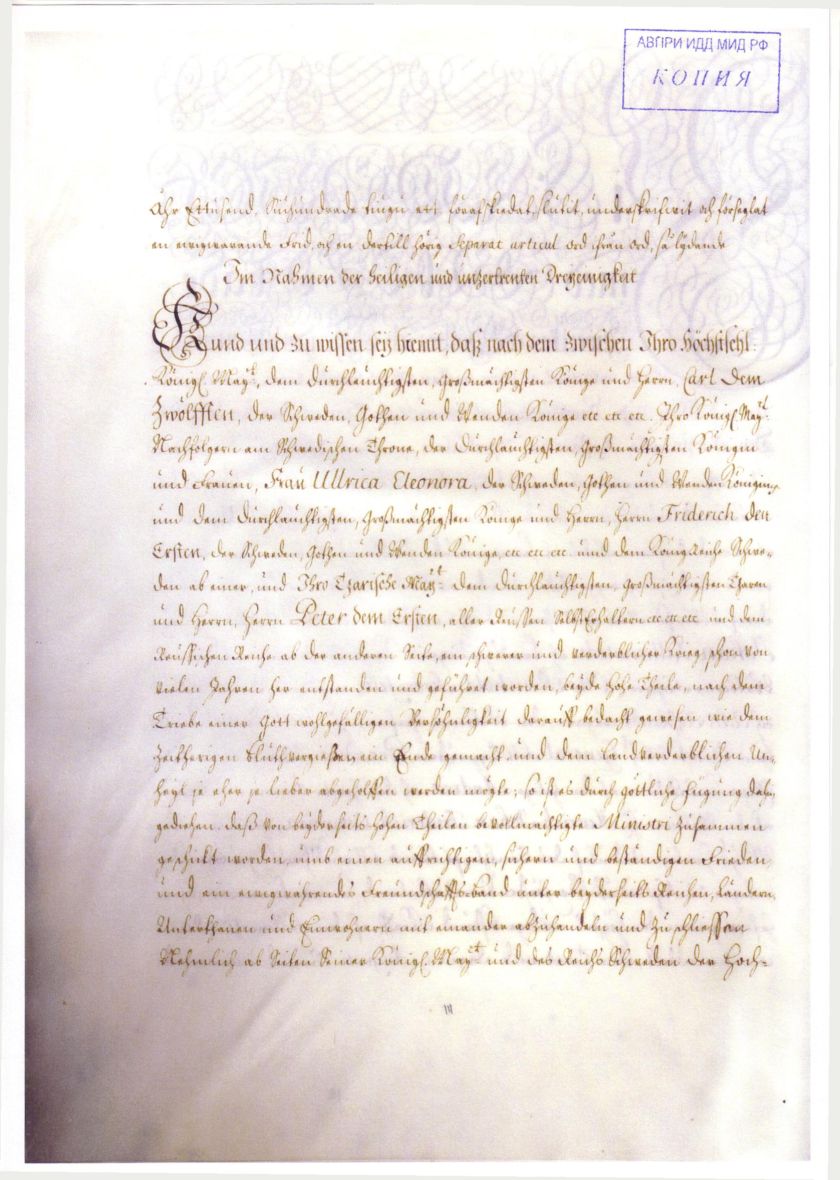 АВПРИ ИДД МИД РФ
КОПИЯ
Åhr Ettusend, Siuhundrade tiugu ett förafskiedat, slutit, underskrifwit och förseglat
en ewigwarande Frid, och en dertill hörig Separat articul ord ifrån ord, så lydande
Im Nahmen der Heiligen und unzertrenten Dreyeinigkeit
Kund und zu wissen seÿ hiemit, daß nach dem zwischen Ihro Höchstsehl:
Königl. Maytt, dem Durchläuchtigsten, Großmächtigsten Könige und Herrn, Carl dem
Zwölfften, der Schweden, Gothen und Wenden Könige etc etc etc. Ihro Königl Maytt
Nachfolgern am Schwedischen Throne, der Durchläuchtigsten, Großmächtigsten Königin
und Frauen, Frau Ullrica Eleonora, der Schweden, Gothen und Wenden Königin,
und dem Durchläuchtigsten, Großmächtigsten Könige und Herrn, Herrn Friderich den
Ersten, der Schweden, Gothen und Wenden Könige, etc etc etc und dem König Reiche Schwe-
den ab einer, und Ihro Czarische Maytt dem Durchläuchtigsten, Großmächtigsten Czaren
und Herrn, Herrn Peter dem Ersten, aller Reussen Selbst Erhaltern etc etc etc und dem
Reussischen Reiche ab der anderen Seite, ein schwerer und verderblicher Krieg schon von
vielen Jahren her entstanden und geführet worden, beÿde hohe Theile, nach dem
Triebe einer Gott wohlgefälligen Versöhnligkeit darauff bedacht gewesen, wie dem
Zeitherigen bluthvergießen ein Ende gemacht, und dem Landverderblichen Un-
heÿl je eher je lieber abgeholffen werden mögte; so ist es durch göttliche Fügung dahin
gediehen, daß von beÿderseits hohen Theilen bevollmächtigte Ministri zusammen
geschickt worden, umb einen auffrichtigen, sichern und beständigen Frieden,
und ein ewigwährendes Freundschaffts-band unter beÿderseits Reichen, Ländern,
Unterthanen und Einwohnern mit einander abzuhandeln und zu schliessen
Nehmlich ab Seiten Seiner Königl. Maytt und des Reichs Schweden der Hoch-